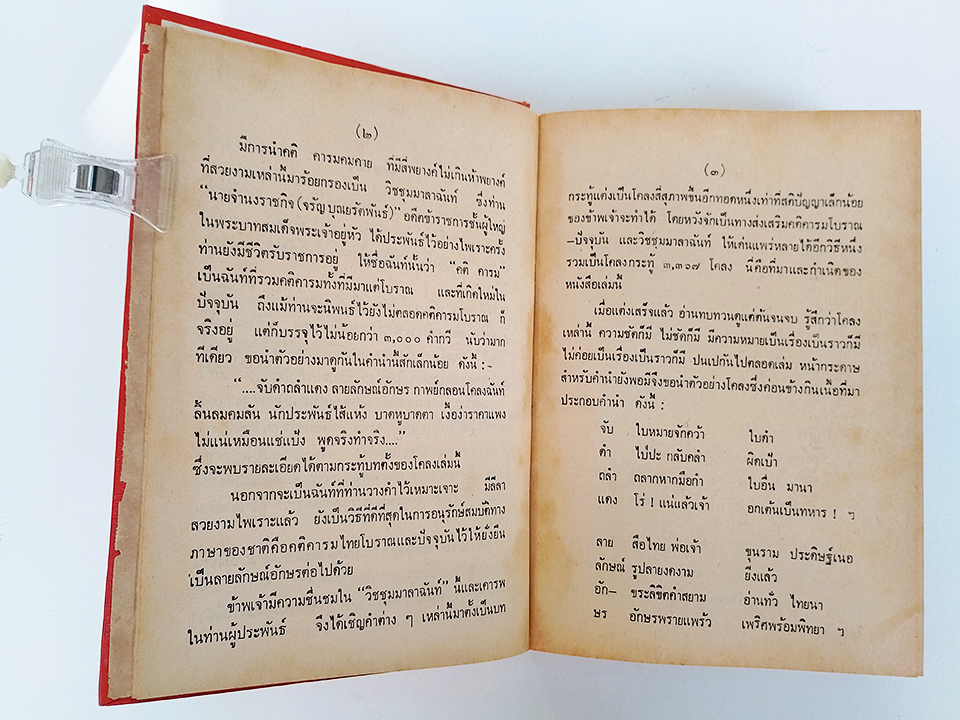 (๒)
มีการนำคติ คารมคมคาย ที่มีสี่พยางค์ไม่เกินห้าพยางค์
ที่สวยงามเหล่านี้มาร้อยกรองเป็น วิชชุมมาลาฉันท์ ซึ่งท่าน
“นายจำนงราชกิจ (จรัญ บุณยรัตพันธ์)” อดีตข้าราชการชั้นผู้ใหญ่
ในพระบาทสมเด็จพระเจ้าอยู่หัว ได้ประพันธ์ไว้อย่างไพเราะครั้ง
ท่านยังมีชีวิตรับราชการอยู่ ให้ชื่อฉันท์นั้นว่า “คติ คารม”
เป็นฉันท์ที่รวมคติคารมทั้งที่มีมาแต่โบราณ และที่เกิดใหม่ใน
ปัจจุบัน ถึงแม้ท่านจะนิพนธ์ไว้ยังไม่ตลอดคติคารมโบราณ ก็
จริงอยู่ แต่ก็บรรจุไว้ไม่น้อยกว่า ๓,๐๐๐ คำกวี นับว่ามาก
ทีเดียว ขอนำตัวอย่างมาดูกันในคำนำนี้สักเล็กน้อย ดังนี้ :-
“....จับคำถลำแดง ลายลักษณ์อักษร กาพย์กลอนโคลงฉันท์
ลิ้นลมคมสัน นักประพันธ์ไส้แห้ง บาดหูบาดตา เงื้อง่าราคาแพง
ไม่แน่เหมือนแช่แป้ง พูดจริงทำจริง....”
ซึ่งจะพบรายละเอียดได้ตามกระทู้บทตั้งของโคลงเล่มนี้
นอกจากจะเป็นฉันท์ที่ท่านวางคำไว้เหมาะเจาะ มีลีลา
สวยงามไพเราะแล้ว ยังเป็นวิธีที่ดีที่สุดในการอนุรักษ์สมบัติทาง
ภาษาของชาติคือคติคารมไทยโบราณและปัจจุบันไว้ให้ยั่งยืน
เป็นลายลักษณ์อักษรต่อไปด้วย
ข้าพเจ้ามีความชื่นชมใน “วิชชุมมาลาฉันท์” นี้และเคารพ
ในท่านผู้ประพันธ์ จึงได้เชิญคำต่าง ๆ เหล่านี้มาตั้งเป็นบท
(๓)
กระทู้แต่งเป็นโคลงสี่สุภาพขึ้นอีกทอดหนึ่งเท่าที่สติปัญญาเล็กน้อย
ของข้าพเจ้าจะทำได้ โดยหวังจักเป็นทางส่งเสริมคติคารมโบราณ
–ปัจจุบัน และวิชชุมมาลาฉันท์ ให้เด่นแพร่หลายได้อีกวิธีหนึ่ง
รวมเป็นโคลงกระทู้ ๓,๓๖๗ โคลง นี่คือที่มาและกำเนิดของ
หนังสือเล่มนี้
เมื่อแต่งเสร็จแล้ว อ่านทบทวนดูแต่ต้นจนจบ รู้สึกว่าโคลง
เหล่านี้ ความชัดก็มี ไม่ชัดก็มี มีความหมายเป็นเรื่องเป็นราวก็มี
ไม่ค่อยเป็นเรื่องเป็นราวก็มี ปนเปกันไปตลอดเล่ม หน้ากระดาษ
สำหรับคำนำยังพอมีจึงขอนำตัวอย่างโคลงซึ่งค่อนข้างกินเนื้อที่มา
ประกอบคำนำ ดังนี้ :
จับ ใบหมายจักคว้า ใบดำ
คำ ไป่ปะ กลับคลำ ผิดเป้า
ถลำ ถลากหากมือกำ ใบอื่น มานา
แดง โร่ ! แน่แล้วเจ้า อกเต้นเป็นทหาร ! ๆ
ลาย สือไทย พ่อเจ้า ขุนราม ประดิษฐ์เนอ
ลักษณ์ รูปลายงดงาม ยิ่งแล้ว
อัก– ขระลิขิตคำสยาม อ่านทั่ว ไทยนา
ษร อักษรพรายแพร้ว เพริศพร้อมพิทยา ๆ